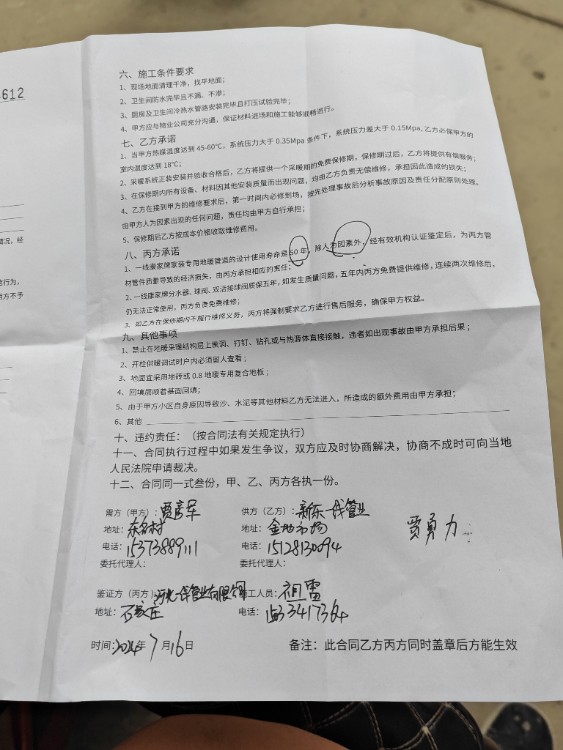 612
六、施工条件要求
1、现场地面清理干净、找平地面；
2、卫生间防水完毕且不漏、不渗；
3、厨房及卫生间冷热水管路安装完毕且打压试验完毕；
4、甲方应与物业公司充分沟通，保证材料进场和施工能够顺畅进行。
七、乙方承诺
1、当甲方热媒温度达到 45-60℃，系统压力大于 0.35Mpa 条件下，系统压力差大于 0.15Mpa，乙方必保甲方的
室内温度达到 18℃；
2、采暖系统正款安装并验收合格后，乙方将提供一个采暖期的免费保修期，保修期过后，乙方将提供有偿服务；
3、在保修期内所有设备、材料因其他安装质量而出现问题，均由乙方负责无偿维修，承担因此造成的损失；
4、乙方在接到甲方的维修要求后，第一时间内必修到场，按先处理事故后分析事故原因及责任分配原则处理。
由甲方人为因素出现的任何问题，责任均由甲方自行承担；
5、保修期后乙方按成本价格收取维修费用。
八、丙方承诺
1、一线豪家牌家装专用地暖管道的设计使用寿命是50年，除人为因素外，经有效机构认证鉴定后，为丙方管
材管件质量导致的经济损失，由丙方承担相应的责任；
2、一线豪家牌分水器、球阀、双活接球阀质保五年，如发生质量问题，五年内丙方免费提供维修，连续两次维修后，
仍无法正常使用，丙方负责免费维修；
3、如乙方在保修期内不履行维修义务，丙方将强制要求乙方进行售后服务，确保甲方权益。
九、其他事项
1、禁止在地暖采暖结构层上凿洞、打钉、钻孔或与热源体直接接触，违者如出现事故由甲方承担后果；
2、开栓供暖调试时户内必须留人查看；
3、地面宜采用地砖或 0.8 地暖专用复合地板；
4、回填层顺着基面回填；
5、由于甲方小区自身原因导致沙、水泥等其他材料乙方无法进入，所造成的额外费用由甲方承担；
6、其他
十、违约责任：（按合同法有关规定执行）
十一、合同执行过程中如果发生争议，双方应及时协商解决，协商不成时可向当地
人民法院申请裁决。
十二、合同同一式叁份，甲、乙、丙方各执一份。
需方（甲方）：贾富军 供方（乙方）：新东一线管业
地址：东名村 地址：金地市场 贾勇力
电话：15373889111 电话：15128130094
委托代理人： 委托代理人：
鉴证方（丙方）：河北一线管业有限公司 施工人员：祖雷
地址：石家庄 电话：15333417364
时间：2024年7月16日 备注：此合同乙方丙方同时盖章后方能生效